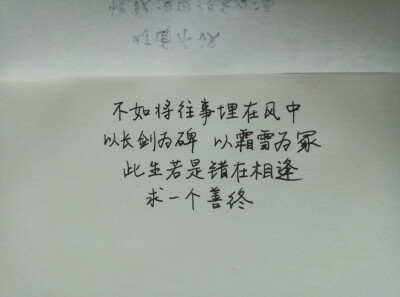 不如将往事埋在风中
以长剑为碑 以霜雪为冢
此生若是错在相逢
求一个善终